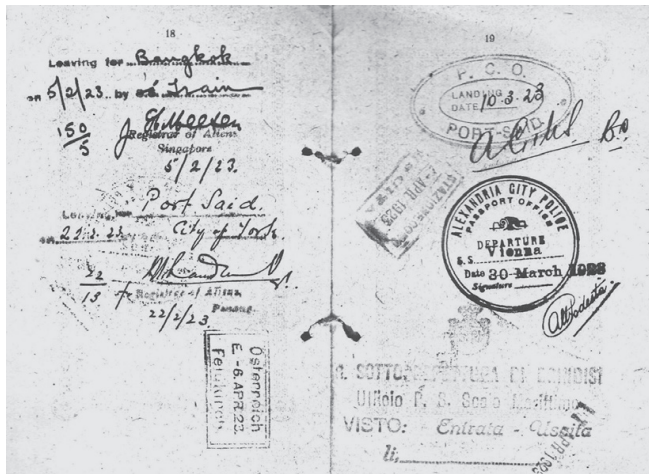 18
Leaving for Bangkok
on 5/2/23 by S.S. Train
150
5
Registrar of Aliens
Singapore
5/2/23.
Leaving for Port Said
City of York.
22
13
Registrar of Aliens,
Penang.
22/2/23.
Österreich
E. -6.APR.23.
Feldkirch
19
P. C. O.
LANDING
DATE 10-3-23
PORT-SAID.
APR 1923
ALEXANDRIA CITY POLICE
PASSPORT OFFICE
DEPARTURE
S.S. Vienna
Date 30 March 1923
Signature
DI BRINDISI
Ufficio P. S. Scalo Marittimo
VISTO: Entrata - Uscita
li,
APR 1923